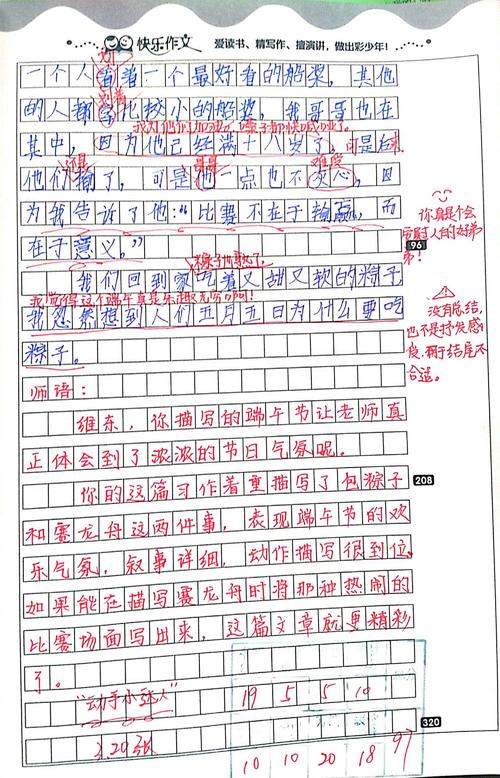 快乐作文 爱读书、精写作、擅演讲,做出彩少年!
划
一个人看着一个最好看的船桨,其他
划着
的人都拿比较小的船桨,我哥哥也在
我为他们加油,嗓子都快喊哑了。
其中,因为他已经满十八岁了。可是后来
还是 难度
他们输了,可是他一点也不灰心,因
为我告诉了他:“比赛不在于输赢,而
在于意义。”
你真是个会
安慰人的好弟
弟!
96
粽子煮熟了,
我们回到家吃着又甜又软的粽子
我觉得这个端午真是乐趣无穷啊!
我忽然想到人们五月五日为什么要吃
粽子。
没有总结,
也不是抒发感
受,用于结尾不
合适。
师语:
维东,你描写的端午节让老师真
正体会到了浓浓的节日气氛呢。
你的这篇习作着重描写了包粽子
208
和赛龙舟这两件事,表现端午节的欢
乐气氛,叙事详细,动作描写很到位。
如果能在描写赛龙舟时将那种热闹的
比赛场面写出来,这篇文章就更精彩
了。
“动手小达人”
19 5 5 10
320
3.20张
10 10 20 18 97